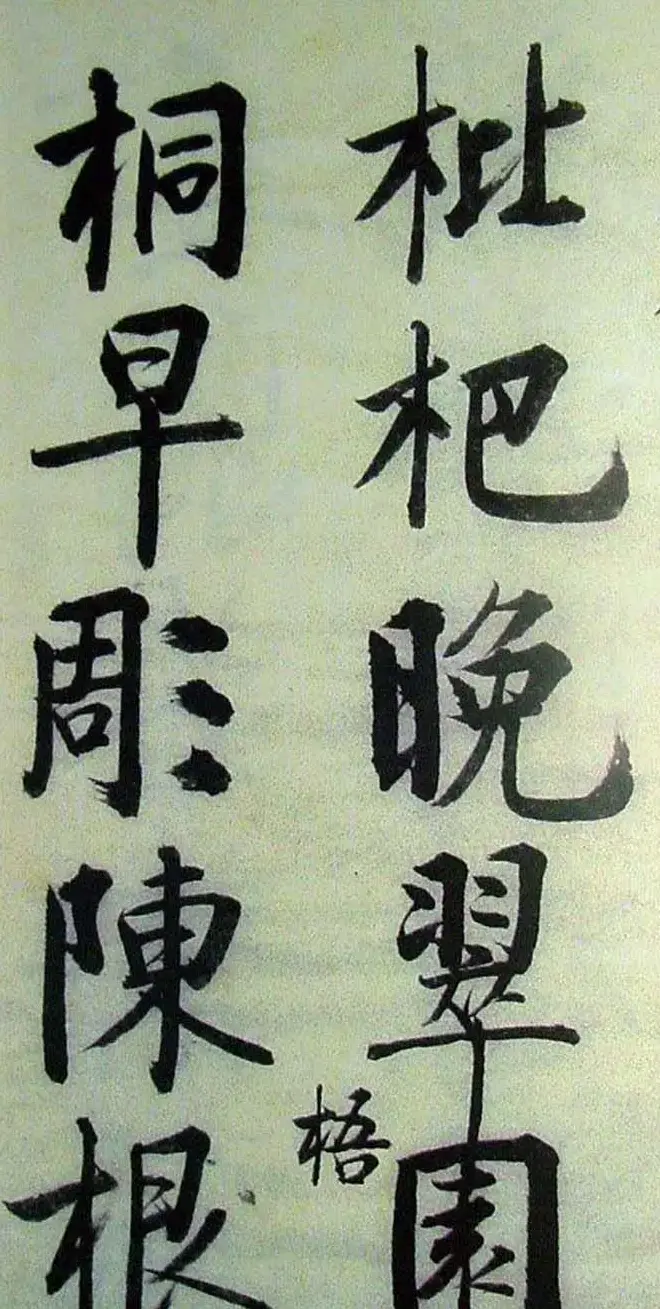 枇杷晚翠園
梧
桐早彫陳根